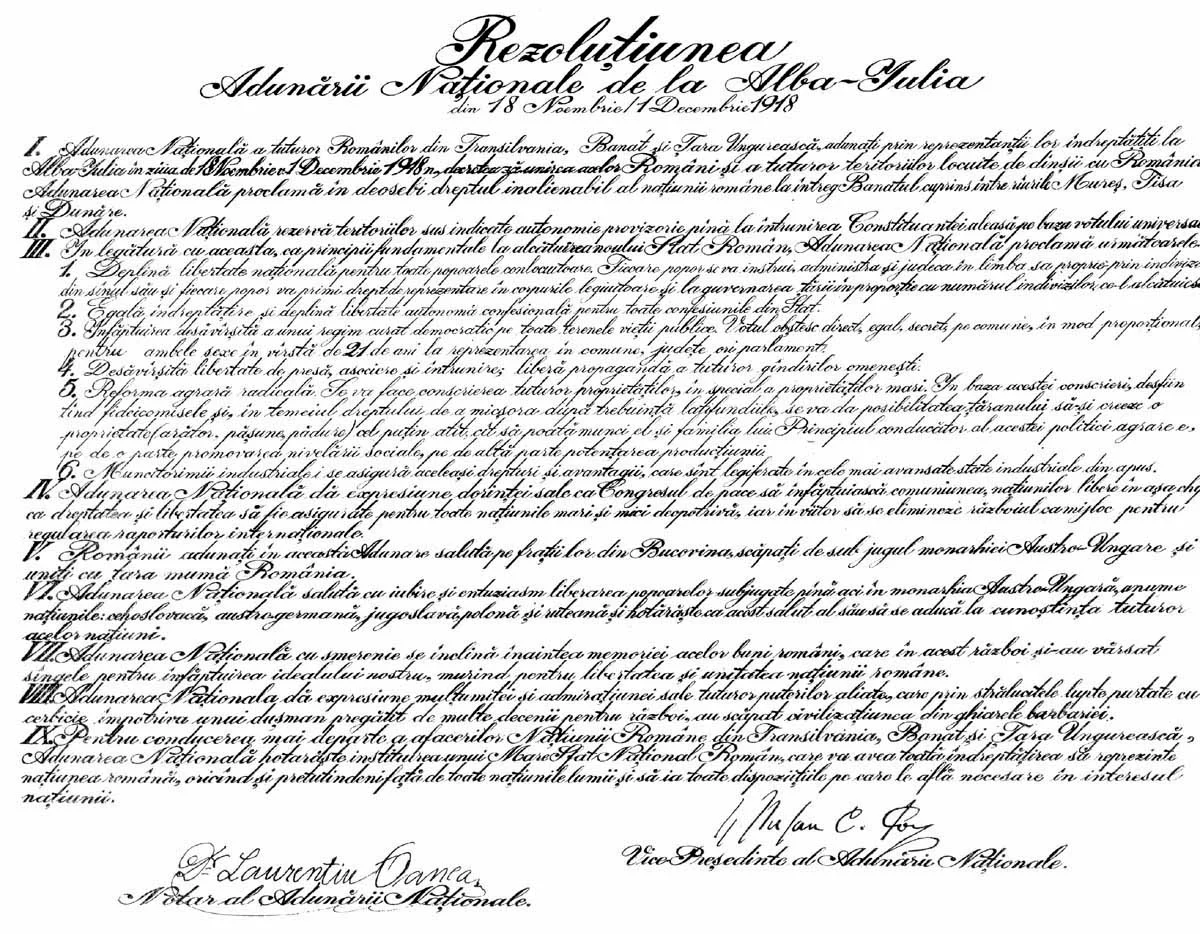 Rezoluțiunea
Adunării Naționale de la Alba-Iulia
din 18 Noembrie/1 Decembrie 1918
I. Adunarea Națională a tuturor Românilor din Transilvania, Banat și Țara Ungurească, adunați prin reprezentanții lor îndreptățiți la
Alba-Iulia în ziua de 18 Noembrie 1 Decembrie 1918, decretează unirea acelor Români și a tuturor teritoriilor locuite de dînșii cu România
Adunarea Națională proclamă în deosebi dreptul inalienabil al națiunii române la întreg Banatul cuprins între rîurile Mureș, Tisa
și Dunăre.
II. Adunarea Națională rezervă teritoriilor sus indicate autonomie provizorie pînă la întrunirea Constituantei aleasă pe baza votului universa
III. În legătură cu aceasta, ca principii fundamentale la alcătuirea noului Stat Român, Adunarea Națională proclamă următoarele:
1. Deplină libertate națională pentru toate popoarele conlocuitoare. Fiecare popor se va instrui, administra și judeca în limba sa proprie prin indivizi
din sînul său și fiecare popor va primi drept de reprezentare în corpurile legiuitoare și la guvernarea țării în proporție cu numărul indivizilor ce-l alcătuies
2. Egală îndreptățire și deplină libertate autonomă confesională pentru toate confesiunile din Stat.
3. Înfăptuirea desăvîrșită a unui regim curat democratic pe toate terenele vieții publice. Votul obștesc direct, egal, secret, pe comune, în mod proporțional
pentru ambele sexe în vîrstă de 21 de ani la reprezentarea în comune, județe ori parlament.
4. Desăvîrșită libertate de presă, asociere și întrunire; liberă propagandă a tuturor gîndirilor omenești.
5. Reforma agrară radicală. Se va face conscrierea tuturor proprietăților, în special a proprietăților mari. În baza acestei conscrieri, desfiin
țînd fideicomisele și, în temeiul dreptului de a micșora după trebuință latifundiile, se va da posibilitatea țăranului să-și creeze o
proprietate (arător, pășune, pădure) cel puțin atît cît să poată munci el și familia lui. Principiul conducător al acestei politici agrare e,
pe de o parte promovarea nivelării sociale, pe de altă parte potențarea producțiunii
6. Muncitorimii industriale i se asigură aceleași drepturi și avantagii, care sînt legiferate în cele mai avansate state industriale din apus.
IV. Adunarea Națională dă expresiune dorinței sale ca Congresul de pace să înfăptuiască comuniunea națiunilor libere în așa chip
ca dreptatea și libertatea să fie asigurate pentru toate națiunile mari și mici deopotrivă, iar în viitor să se elimineze războiul ca mijloc pentru
regularea raporturilor internaționale.
V. Românii adunați în această Adunare salută pe frații lor din Bucovina, scăpați de sub jugul monarhiei Austro-Ungare și
uniți cu țara mumă România.
VI. Adunarea Națională salută cu iubire și entuziasm liberarea popoarelor subjugate pînă aci în monarhia Austro-Ungară, anume
națiunile: cehoslovacă, austro-germană, jugoslavă, polonă și ruteană și hotărăște ca acest salut al său să se aducă la cunoștința tuturor
acelor națiuni.
VII. Adunarea Națională cu smerenie se închină înaintea memoriei acelor buni români, care în acest război și-au vărsat
sîngele pentru înfăptuirea idealului nostru, murind pentru libertatea și unitatea națiunii române.
VIII. Adunarea Naționala dă expresiune mulțumitei și admirațiunei sale tuturor puterilor aliate, care prin strălucitele lupte purtate cu
cerbicie împotriva unui dușman pregătit de multe decenii pentru război, au scăpat civilizațiunea din ghiarele barbariei.
IX. Pentru conducerea mai departe a afacerilor Națiunii Române din Transilvania, Banat și Țara Ungurească,
Adunarea Națională hotărăște instituirea unui Mare Sfat Național Român, care va avea toată îndreptățirea să reprezinte
națiunea română, oricînd și pretutindeni față de toate națiunile lumii și să ia toate dispozițiile pe care le află necesare în interesul
națiunii.
Vice-Președinte al Adunării Naționale.
Dr Laurențiu Oanea
Notar al Adunării Naționale.